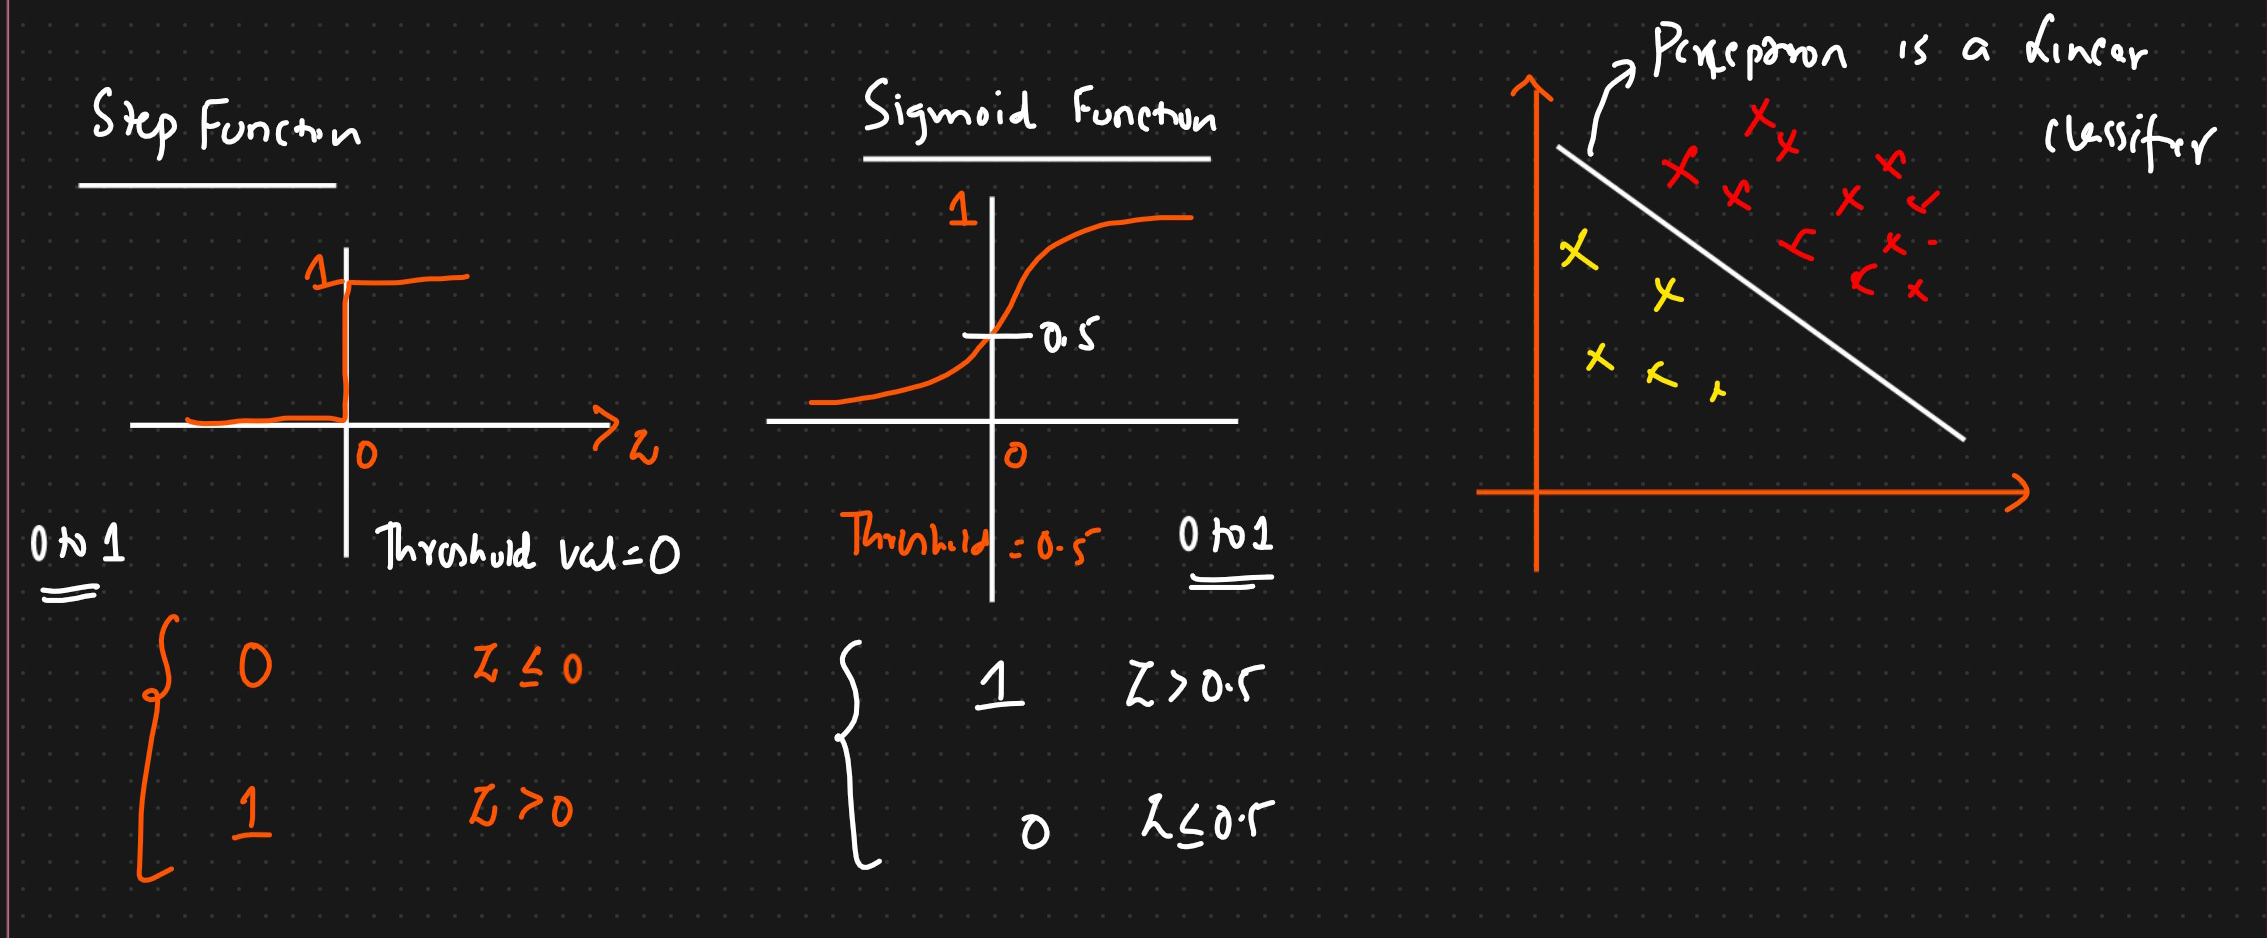 Step Function
1
0
Z
0 to 1
Threshold val = 0
0 Z ≤ 0
1 Z > 0
Sigmoid Function
1
0.5
0
Threshold = 0.5
0 to 1
1 Z > 0.5
0 Z ≤ 0.5
Perceptron is a Linear
classifier